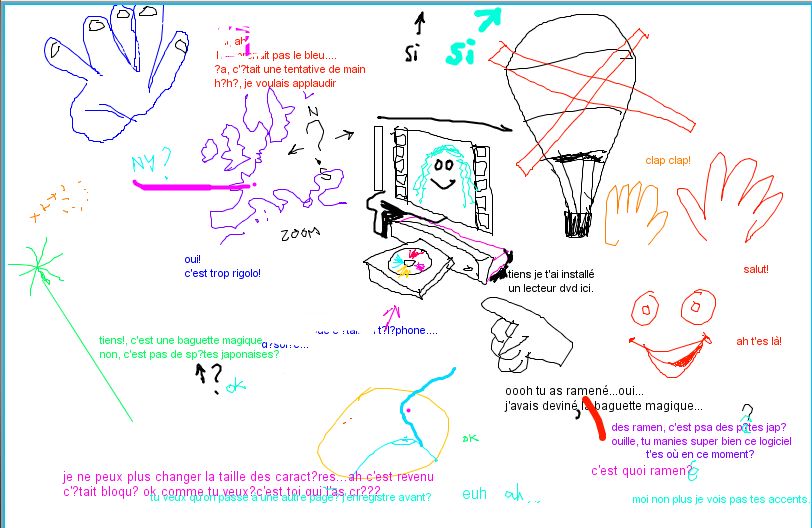 si
si
ah
pas le bleu....
?a, c'?tait une tentative de main
h?h?, je voulais applaudir
N
?
NY?
clap clap!
ZOOM
oui!
c'est trop rigolo!
salut!
tiens je t'ai installé
un lecteur dvd ici.
t?l?phone....
d?sol?e...
tiens!, c'est une baguette magique
non, c'est pas de sp?tes japonaises?
ah t'es là!
?
ok
oooh tu as ramené...oui...
j'avais deviné la baguette magique...
?
des ramen, c'est psa des p?tes jap?
ouille, tu manies super bien ce logiciel
t'es où en ce moment?
ok
c'est quoi ramen?
je ne peux plus changer la taille des caract?res...ah c'est revenu
c'?tait bloqu? ok comme tu veux?c'est toi qui l'as cr???
tu veux qu'on passe a une autre page? j'enregistre avant?
euh ah...
moi non plus je vois pas tes accents